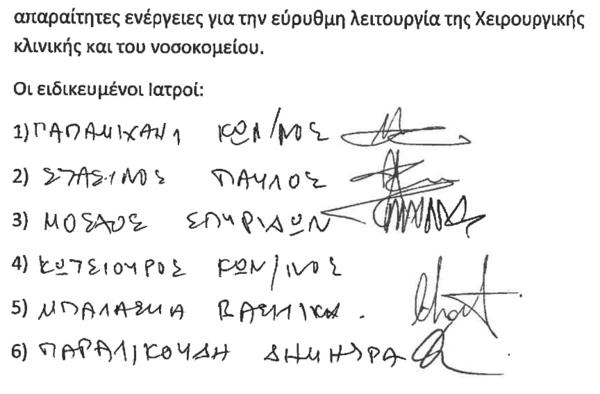 απαραίτητες ενέργειες για την εύρυθμη λειτουργία της Χειρουργικής
κλινικής και του νοσοκομείου.
Οι ειδικευμένοι Ιατροί:
1) ΚΩΝ/ΝΟΣ
2) ΣΠΑΣΙΝΟΣ ΠΑΥΛΟΣ
3) ΣΠΥΡΙΔΩΝ
4) ΚΩΤΣΙΟΥΡΟΣ ΚΩΝ/ΙΝΟΣ
5) ΜΠΑΛΑΣΚΑ ΒΑΣΙΛΙΚΗ.
6) ΔΗΜΗΤΡΑ